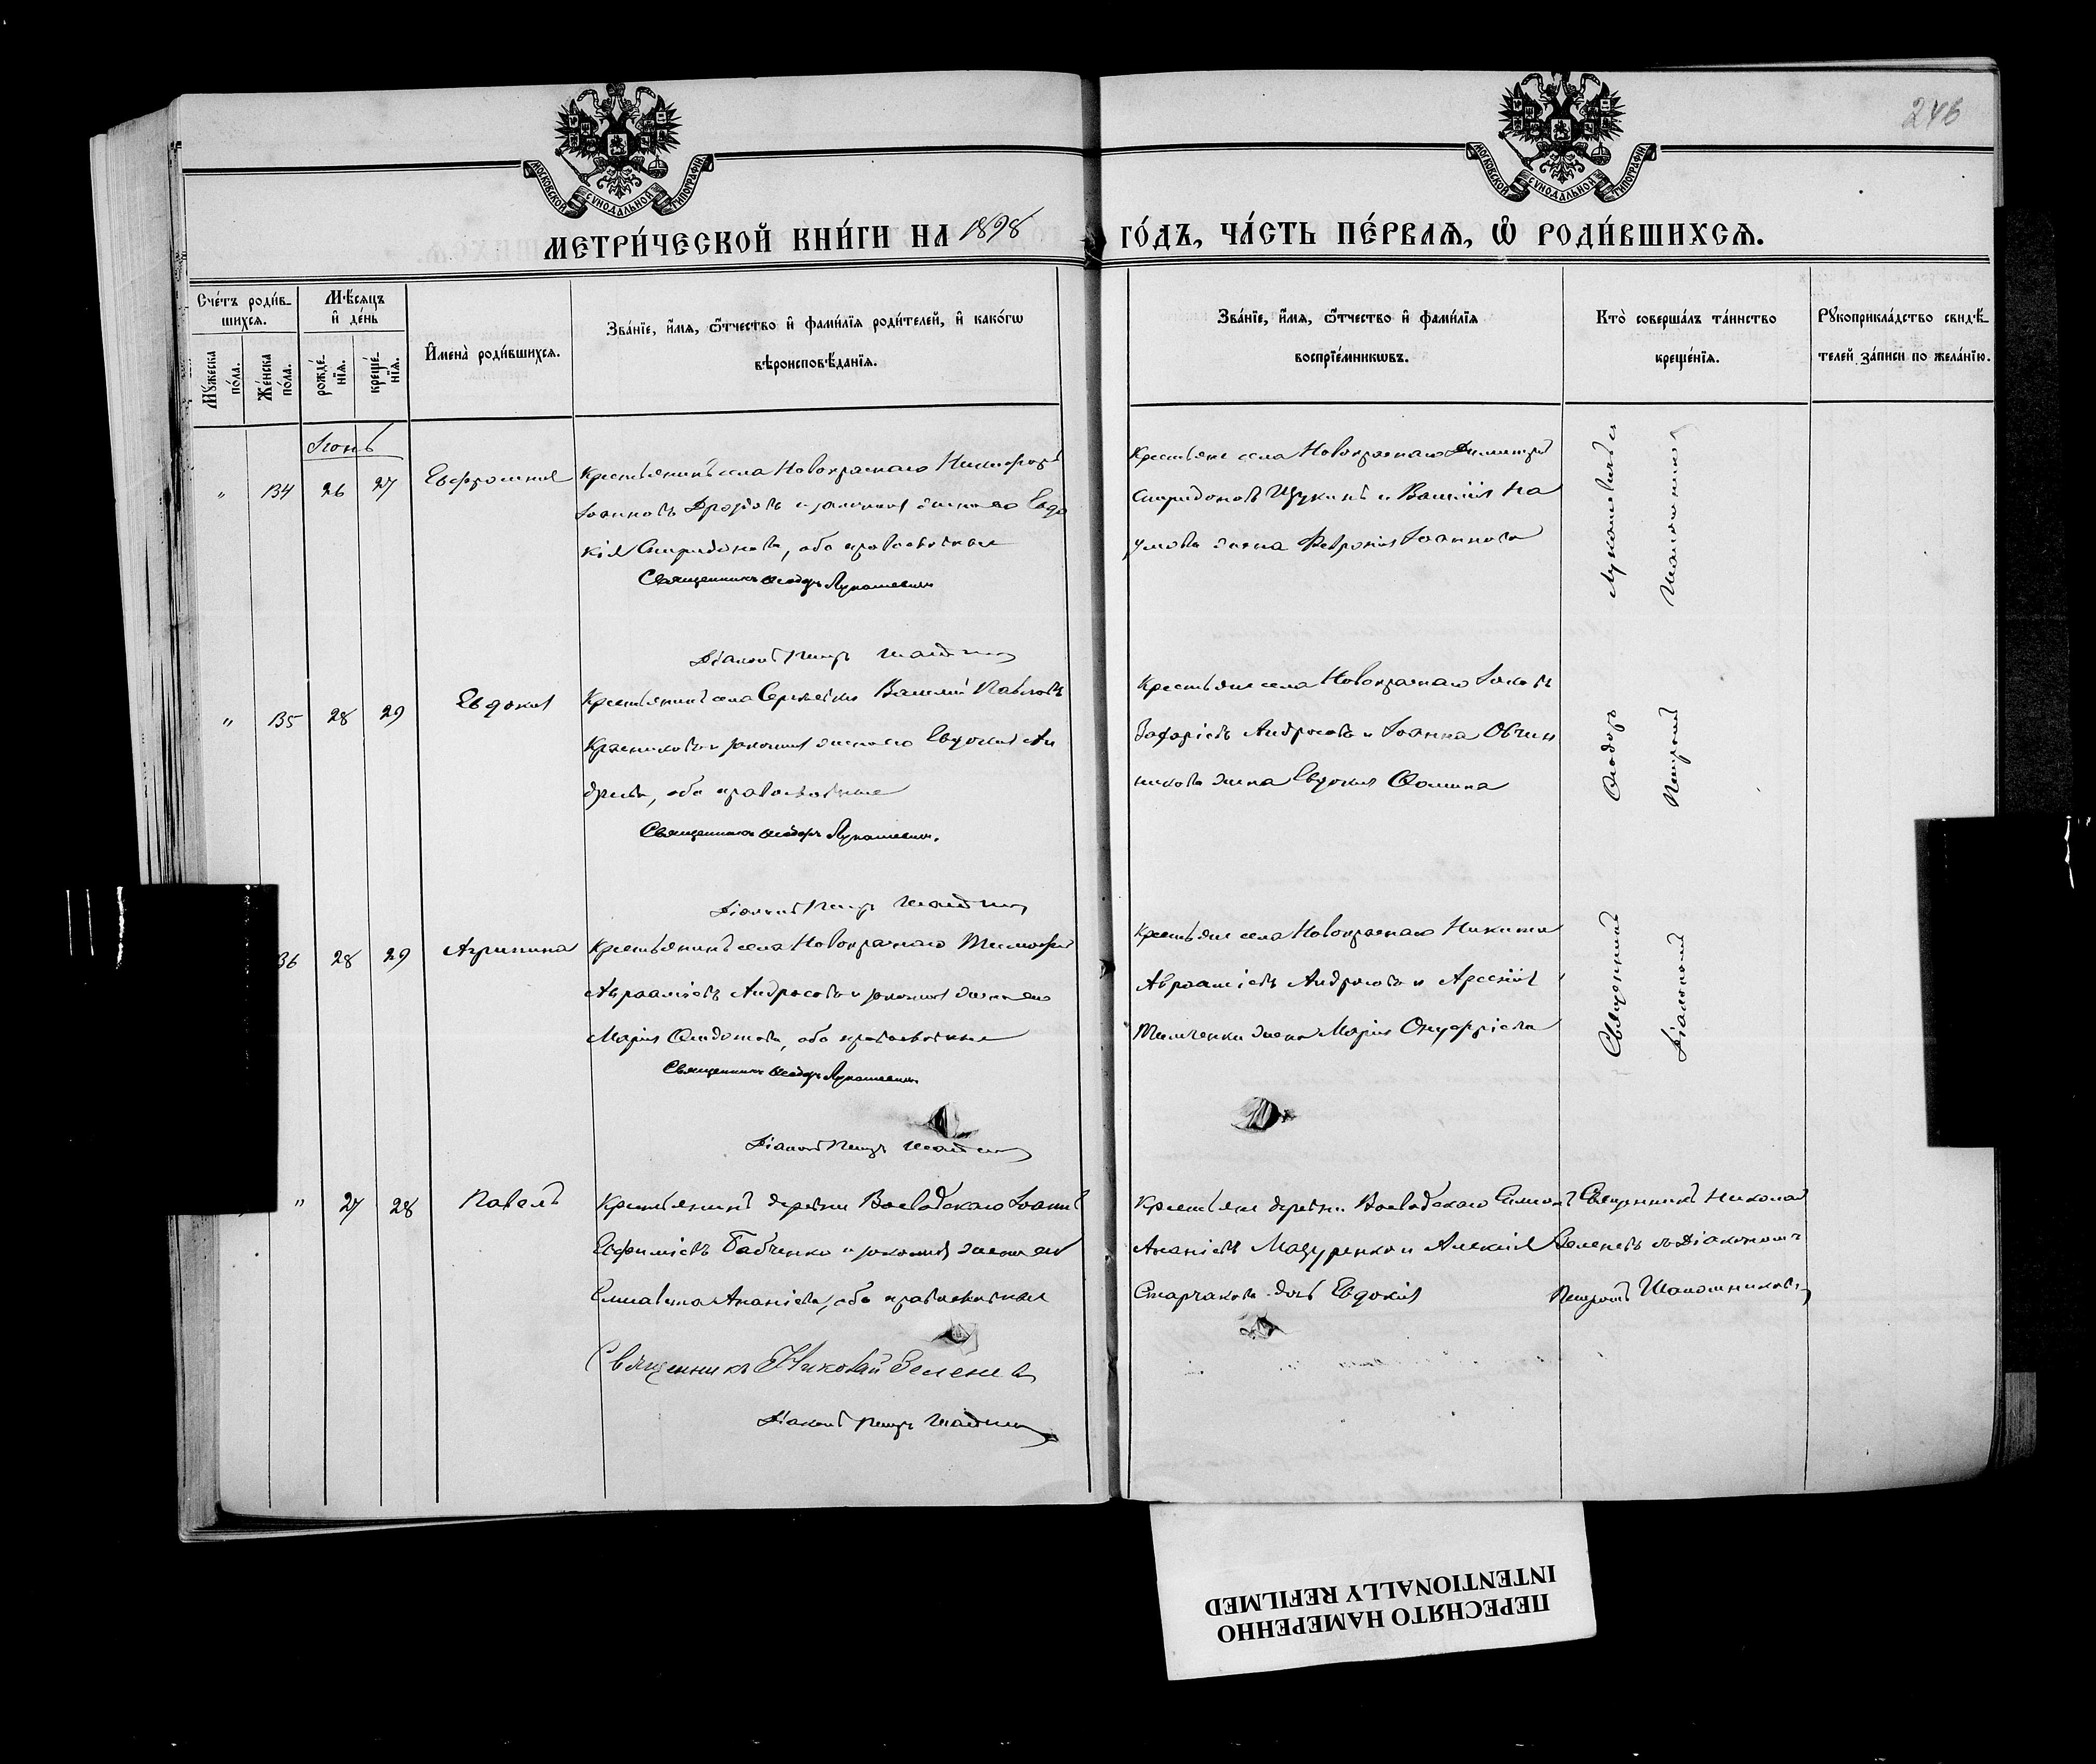 246
МОСКОВСКОЙ СѴНОДАЛЬНОЙ ТИПОГРАФІИ
МОСКОВСКОЙ СѴНОДАЛЬНОЙ ТИПОГРАФІИ
МЕТРИ́ЧЕСКОЙ КНИ́ГИ НА 1898 ГО́ДЪ, ЧА́СТЬ ПЕ́РВАѦ, Ѡ҆ РОДИ́ВШИХСѦ.
Сче́тъ роди́в-
шихсѧ.
Мꙋ́жеска по́ла.
Же́нска по́ла.
Мѣ́сѧцъ и҆ де́нь
рожде́-нїѧ.
креще́-нїѧ.
И҆мена̀ роди́вшихсѧ.
Зва́нїе, и҆́мѧ, ѻ҆́тчество и҆ фами́лїѧ роди́телей, и҆ како́гѡ
вѣроисповѣ́данїѧ.
Зва́нїе, и҆́мѧ, ѻ҆́тчество и҆ фами́лїѧ
воспрїе́мникѡвъ.
Кто̀ соверша́лъ та́инство
креще́нїѧ.
Рꙋкоприкла́дство свидѣ́-
телей за́писи по жела́нїю.
Іюнь
" 134 26 27 Евфросинія
Крестьянинъ села Новокраснаго Никифоръ
Іоанновъ Дроздовъ и законная жена его Евдо
кія Спиридонова, оба православные
Священникъ Ѳеодоръ Лукашевич
Діаконъ Петръ
Крестьяне села Новокраснаго Димитрій
Спиридоновъ Щукинъ и Василія На
умова жена Феврония Іоаннова
" 135 28 29 Евдокія
Крестьянинъ села Василій Павловъ
и законная жена его Евдокия Ан
дреева, оба православные
Священникъ Ѳеодоръ Лукашевич.
Діаконъ Петръ
Крестьяне села Новокраснаго Іаковъ
Захаріевъ Андросовъ и Іоанна Овчин
никова жена Евдокия Ѳомина
36 28 29 Агрипина
Крестьянинъ села Новокраснаго Тимофей
Авраамієвъ Андросовъ и законная жена его
Марія, оба православные
Священникъ Ѳеодоръ Лукашевич
Діаконъ Петръ
Крестьяне села Новокраснаго Никита
Авраамієвъ Андросовъ и Арсенія
Тимченки жена Марія Онуфріева
Священникъ Ѳеодоръ Лукашевичъ съ
Діакономъ Петромъ Шапошниковымъ
" 27 28 Павелъ
Крестьянинъ деревни Воеводскаго Іоаннъ
Евфиміевъ Бабченко и законная жена его
Елисавета Ананіева, оба православные
Священникъ Николай Зеленевъ
Діаконъ Петръ
Крестьяне деревни Воеводскаго Симеонъ
Ананіевъ Мазуренко и Алексія
Старчакова дочь Евдокія
Священникъ Николай
Зеленевъ съ Діакономъ
Петромъ Шапошниковымъ
ПЕРЕСНЯТО НАМЕРЕННО
INTENTIONALLY REFILMED